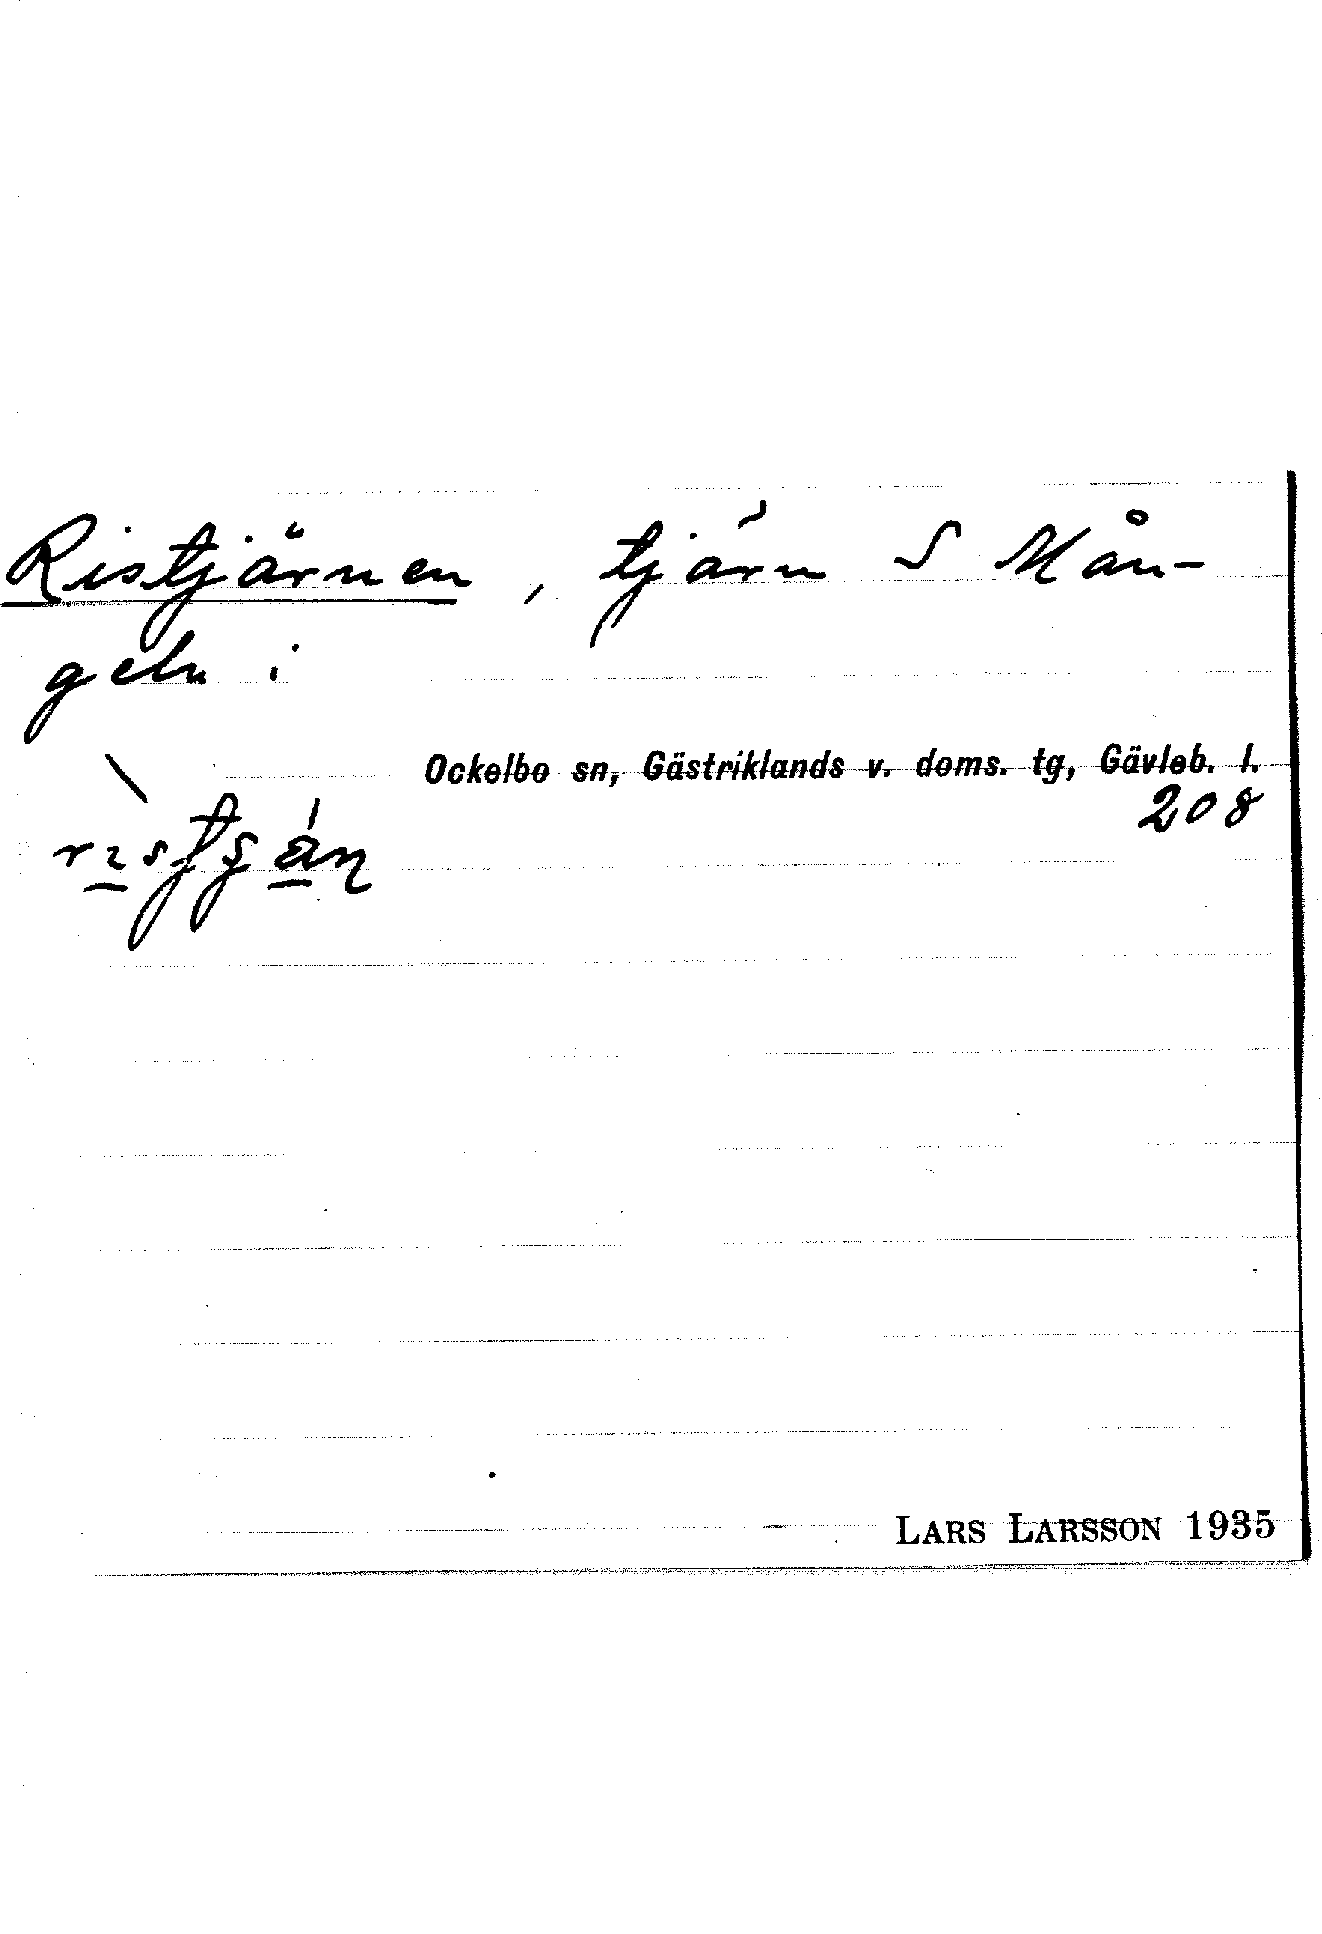 Ristjärnen, tjärn S Mån-
geln i
Ockelbo sn, Gästriklands v. doms. tg, Gävleb. l.
208
LARS LARSSON 1935